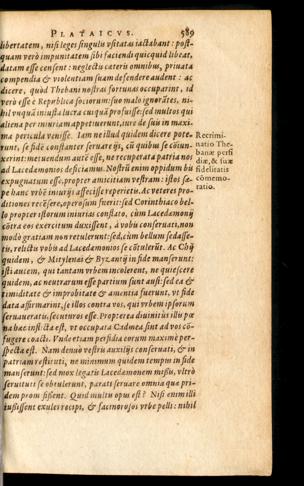 PLATAICVS. 589
libertatem, nisi leges singuli vsitatas iactabant: post-
quam verò impunitatem sibi faciendi quicquid libeat,
datam esse censent: neglectis cæteris omnibus, priuata
compendia & violentiam suam defendere audent: ac
dicere, quòd Thebani nostras fortunas occuparint, id
verò esse è Republica sociorum: suo malo ignorātes, ni-
hil vnquā iniusta lucra cuiquā profuisse: sed multos qui
aliena per iniuriam appetiuerunt, iure de suis in maxi-
ma pericula venisse. Iam ne illud quidem dicere pote-
runt, se fidè constanter seruare ijs, cū quibus se cōiun-
xerint: metuendum autē esse, ne recuperata patria nos
ad Lacedæmonios deficiamus. Nostrū enim oppidum bis
expugnatum esse, propter amicitiam vestram: istos sæ-
pe hanc vrbē iniurijs affecisse reperietis. Ac veteres pro-
ditiones recēsere, operosum fuerit: sed Corinthiaco bel-
lo propter istorum iniurias conflato, cùm Lacedæmonij
cōtra eos exercitum duxissent, à vobis conseruati, non
modò gratiam non retulerunt: sed, cùm bellum sedasse-
tis, relictis vobis ad Lacedæmonios se cōtulerūt. Ac Chij
quidem, & Mitylenæi & Byzantij in fide manserunt:
isti autem, qui tantam vrbem incolerent, ne quiescere
quidem, ac neutrarum esse partium sunt ausi: sed ea &
timiditate & improbitate & amentia fuerunt, vt fide
data affirmarint, se illos contra vos, qui vrbem ipsorum
seruaueratis, secuturos esse. Propterea diuinitùs illis pœ
na hæc inflicta est, vt occupata Cadmea sint ad vos cō-
fugere coacti. Vnde etiam perfidia eorum maximè per-
specta est. Nam denuò vestris auxilijs conseruati, & in
patriam restituti, ne minimum quidem tempus in fide
manserunt: sed mox legatis Lacedæmonem missis, vltrò
seruitutē se obtulerunt, parati seruare omnia quæ pri-
dem prom sissent. Quid multis opus est? Nisi enim illi
iussissent exules recipi, & facinorosos vrbe pelli: nihil
Recrimi-
natio The-
banæ perfi
diæ, & suæ
fidelitatis
cōmemo-
ratio.